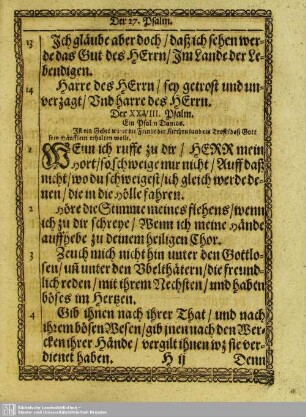 Der 27. Psalm.
13 Ich gläube aber doch / daß ich sehen wer-
de das Gut des HErrn / Im Lande der Le-
bendigen.
14 Harre des HErrn / sey getrost und un-
verzagt / Vnd harre des HErrn.
Der XXVIII. Psalm.
Ein Psalm Davids.
Ist ein Gebet wider die Feinde der Kirchen und ein Trost / daß Gott
sein Häufflein erhalten wolle.
WEnn ich ruffe zu dir / HERR mein
Hort / so schweige mir nicht / Auff daß
nicht / wo du schweigest / ich gleich werde de-
nen / die in die Hölle fahren.
2 Höre die Stimme meines flehens / wenn
ich zu dir schreye / Wenn ich meine Hände
auffhebe zu deinem heiligen Chor.
3 Zeuch mich nicht hin unter den Gottlo-
sen / uñ unter den Vbelthätern / die freund-
lich reden / mit ihrem Nechsten / und haben
böses im Hertzen.
4 Gib ihnen nach ihrer That / und nach
ihrem bösen Wesen / gib jnen nach den Wer-
cken ihrer Hände / vergilt ihnen wz sie ver-
dienet haben. H ij Denn